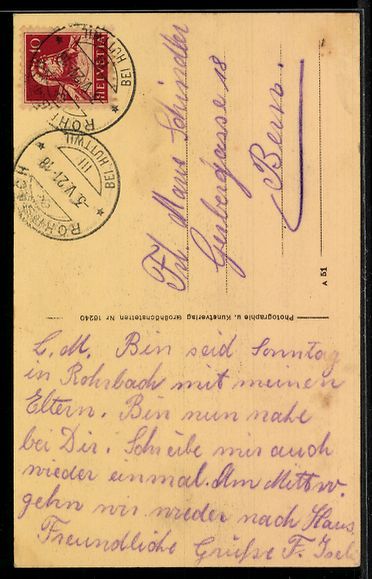 10
HELVETIA
ROHRBACH
BEI HUTTWIL
-6.V.21-18
III
Frl. Marie Schindler
Gerbergasse 18
Bern.
A 51
Photographie u. Kunstverlag Großhöchstetten Nr 16240
L. M. Bin seid Sonntag
in Rohrbach mit meinen
Eltern. Bin nun nahe
bei Dir. Schreibe mir auch
wieder einmal. Am Mittw.
gehn wir wieder nach Haus.
Freundliche Grüße F. Iseli